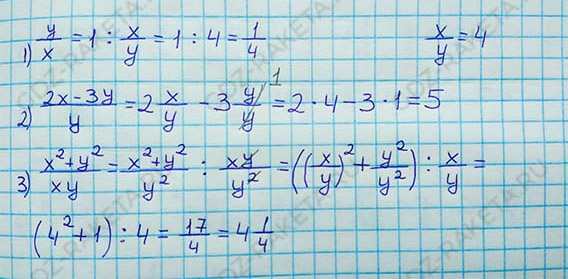 1) y/x = 1 : x/y = 1 : 4 = 1/4    x/y = 4
2) (2x-3y)/y = 2 x/y - 3 y/y 1 = 2 · 4 - 3 · 1 = 5
3) (x²+y²)/(xy) = (x²+y²)/y² : (xy)/y² = ((x/y)² + y²/y²) : x/y =
(4²+1) : 4 = 17/4 = 4 1/4